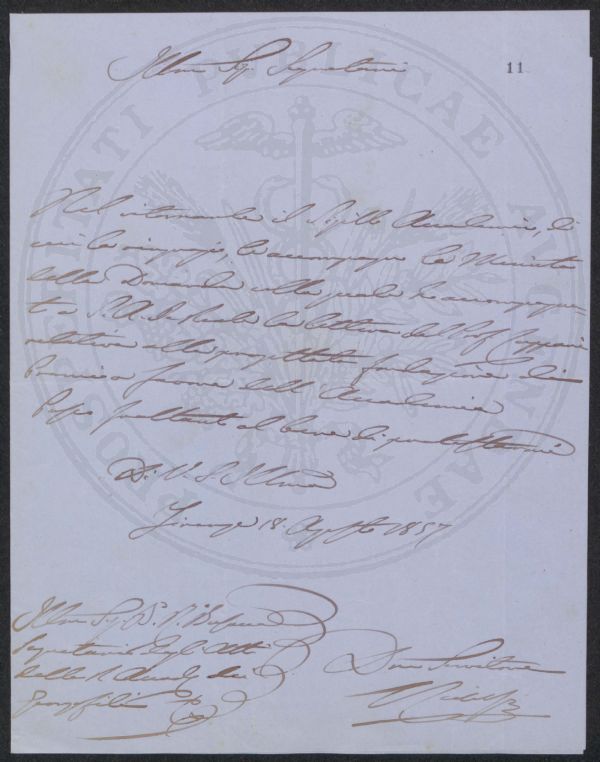 11
Illmo Sig. Segretario
Nel ritornarle il Sigillo Accademico, di
cui la ringrazio, le accompagno la Minuta
della Domanda colla quale ho accompagna-
to a S. A. I. e Reale la lettera del Prof.
relativa alla progettata fondazione di
Premio a favore dell' Accademia
soltanto al bene di quest'
Di V. S. Illma
Firenze 18. Agosto 1857
Illmo Sig. D.
Segretario degli Atti
della R. Accad. dei
Georgofili
Devmo Servitore
Ridolfi
PROSPERITATI PUBLICAE AUGENDAE